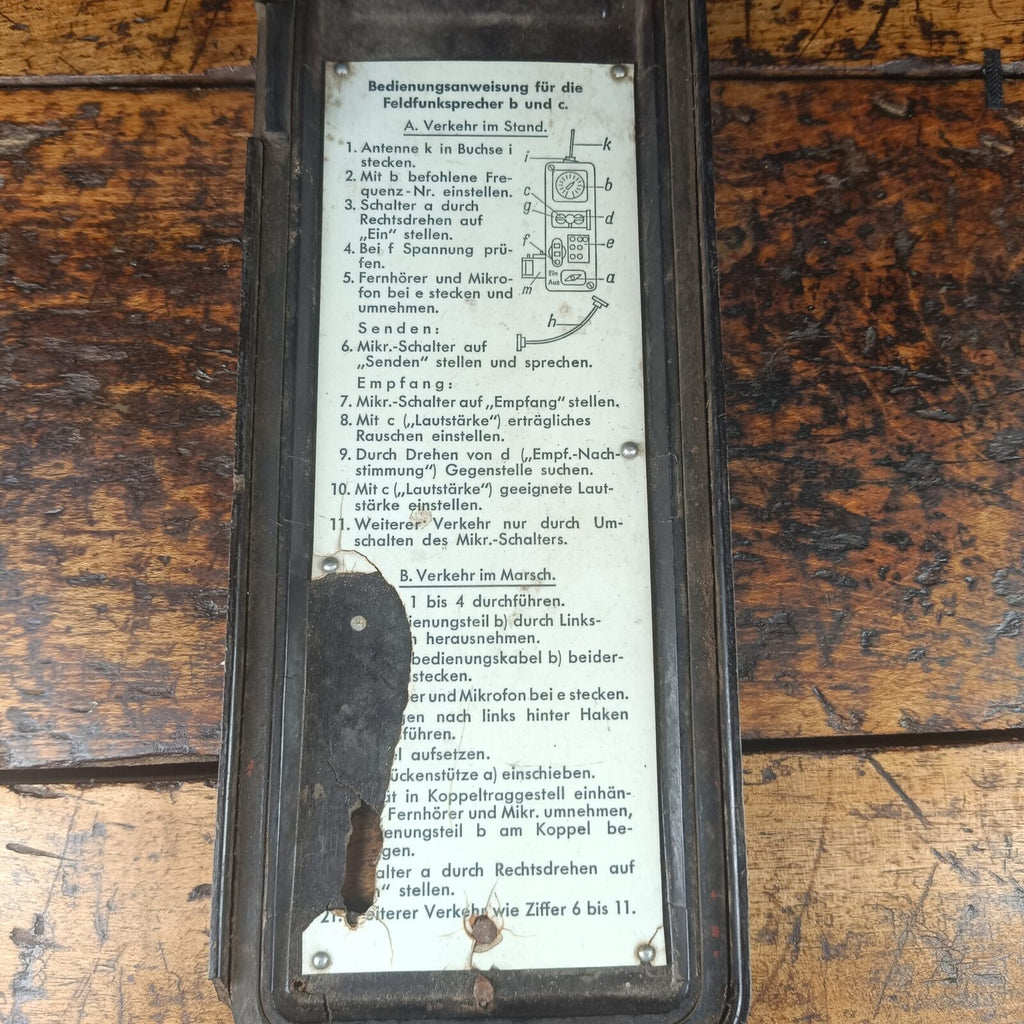 Bedienungsanweisung für die
Feldfunksprecher b und c.
A. Verkehr im Stand.
1. Antenne k in Buchse i
stecken.
2. Mit b befohlene Fre-
quenz-Nr. einstellen.
3. Schalter a durch
Rechtsdrehen auf
„Ein“ stellen.
4. Bei f Spannung prü-
fen.
5. Fernhörer und Mikro-
fon bei e stecken und
umnehmen.
k
i
b
c
g
d
f
e
Ein
Aus
a
m
h
Senden:
6. Mikr.-Schalter auf
„Senden“ stellen und sprechen.
Empfang:
7. Mikr.-Schalter auf „Empfang“ stellen.
8. Mit c („Lautstärke“) erträgliches
Rauschen einstellen.
9. Durch Drehen von d („Empf.-Nach-
stimmung“) Gegenstelle suchen.
10. Mit c („Lautstärke“) geeignete Laut-
stärke einstellen.
11. Weiterer Verkehr nur durch Um-
schalten des Mikr.-Schalters.
B. Verkehr im Marsch.
1 bis 4 durchführen.
ienungsteil b) durch Links-
herausnehmen.
bedienungskabel b) beider-
stecken.
er und Mikrofon bei e stecken.
en nach links hinter Haken
führen.
l aufsetzen.
ückenstütze a) einschieben.
ät in Koppeltraggestell einhän-
Fernhörer und Mikr. umnehmen,
enungsteil b am Koppel be-
gen.
alter a durch Rechtsdrehen auf
n“ stellen.
21. eiterer Verkehr wie Ziffer 6 bis 11.